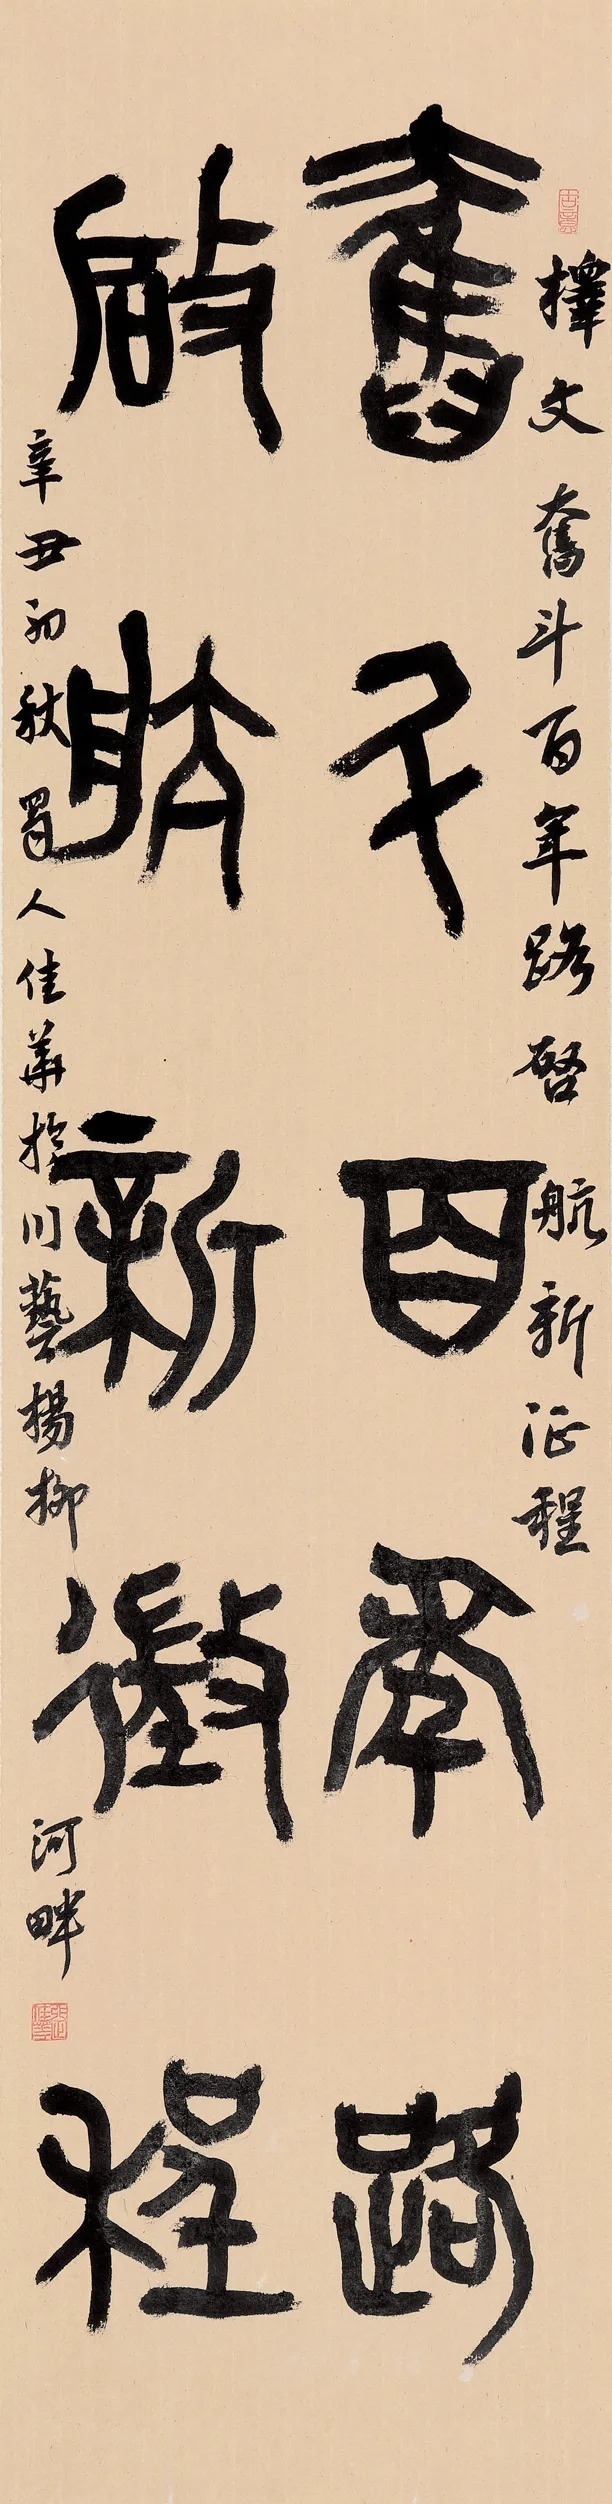 擇文 奮斗百年路啓航新征程
奮斗百年路
啟航新徵程
辛丑初秋蜀人佳華於川藝楊柳河畔